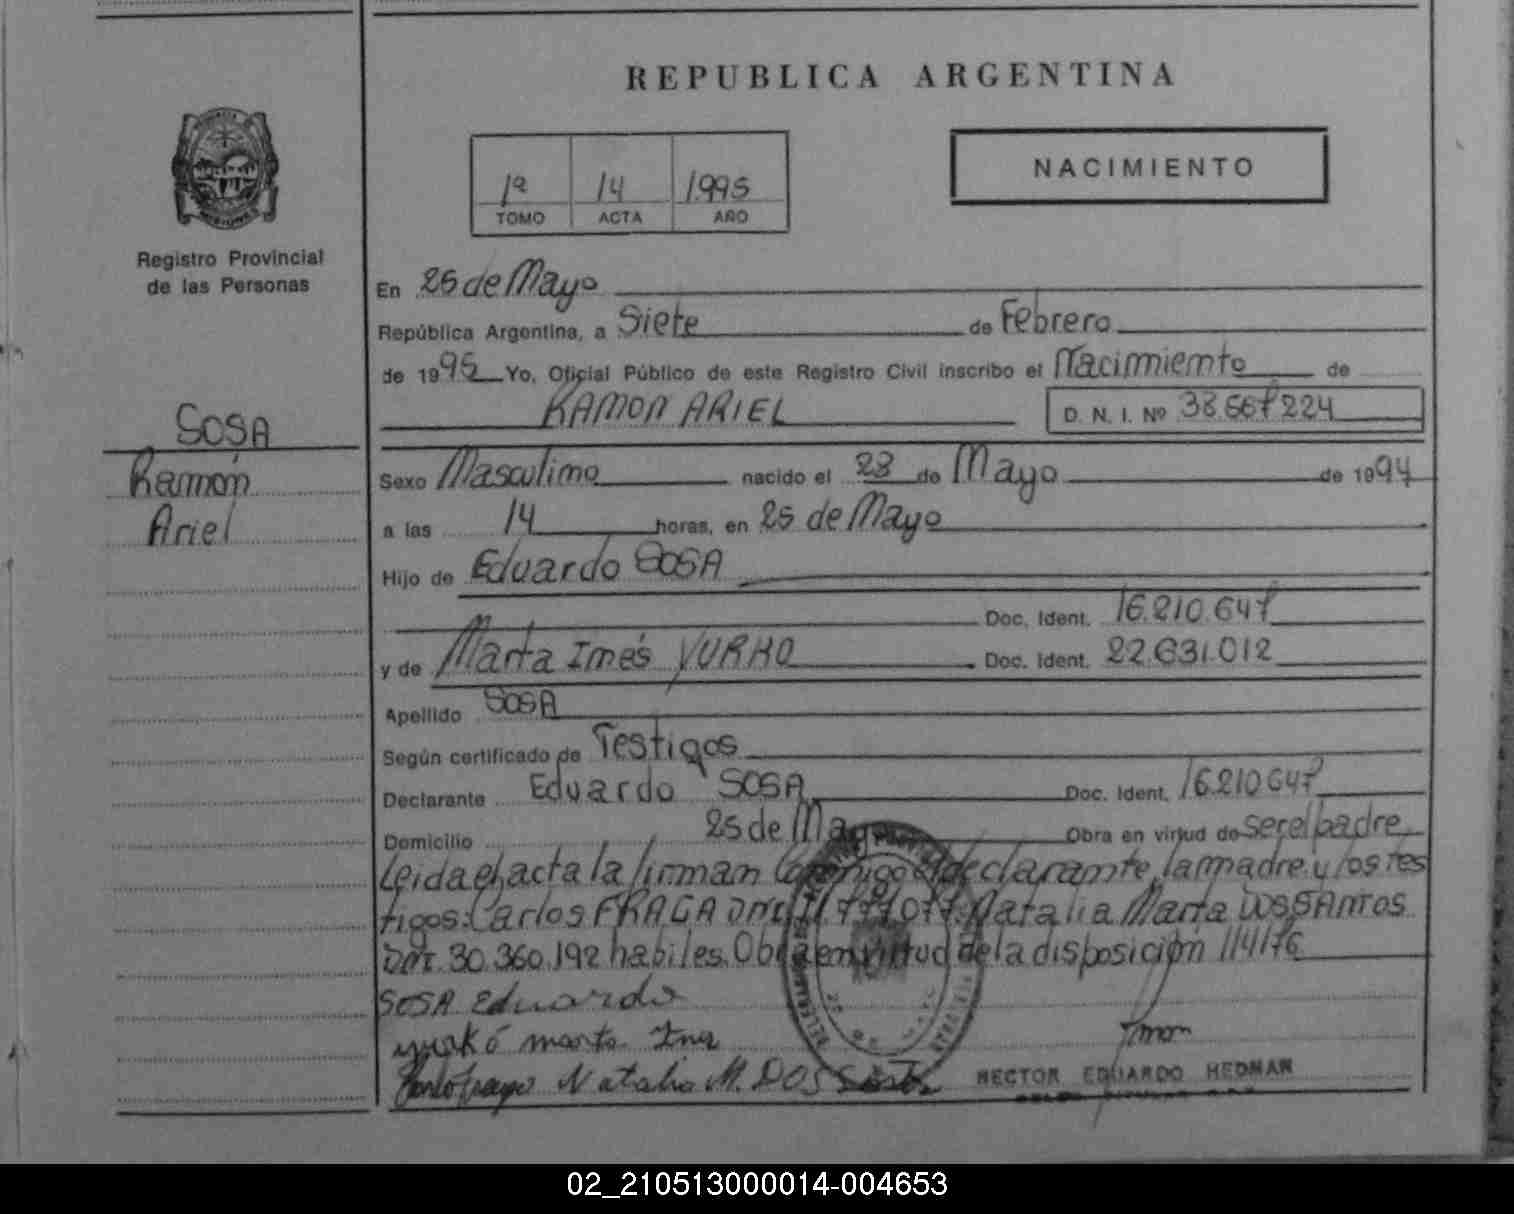 REPUBLICA ARGENTINA
1º 14 1995
TOMO ACTA AÑO
NACIMIENTO
Registro Provincial
de las Personas
SOSA
Ramón
Ariel
En 25 de Mayo
República Argentina, a Siete de Febrero
de 1995 Yo, Oficial Público de este Registro Civil inscribo el Nacimiento de
RAMON ARIEL D. N. I. Nº 38.667.224
Sexo Masculino nacido el 28 de Mayo de 1994
a las 14 horas, en 25 de Mayo
Hijo de Eduardo SOSA
Doc. Ident. 16.210.647
y de Marta Inés YURKO Doc. Ident. 22.631.012
Apellido SOSA
Según certificado de Testigos
Declarante Eduardo SOSA Doc. Ident. 16.210.647
Domicilio 25 de Mayo Obra en virtud de ser el padre
Leida el acta la firman conmigo el declarante, la madre y los tes
tigos: Carlos FRAGA DNI Natalia Marta DOS SANTOS
DNI. 30.360.192 habiles. Obra en virtud de la disposición 114/76
SOSA Eduardo
yurkó marta Ines
Natalia M. DOS Santos
HECTOR EDUARDO HEDMAN
02_210513000014-004653